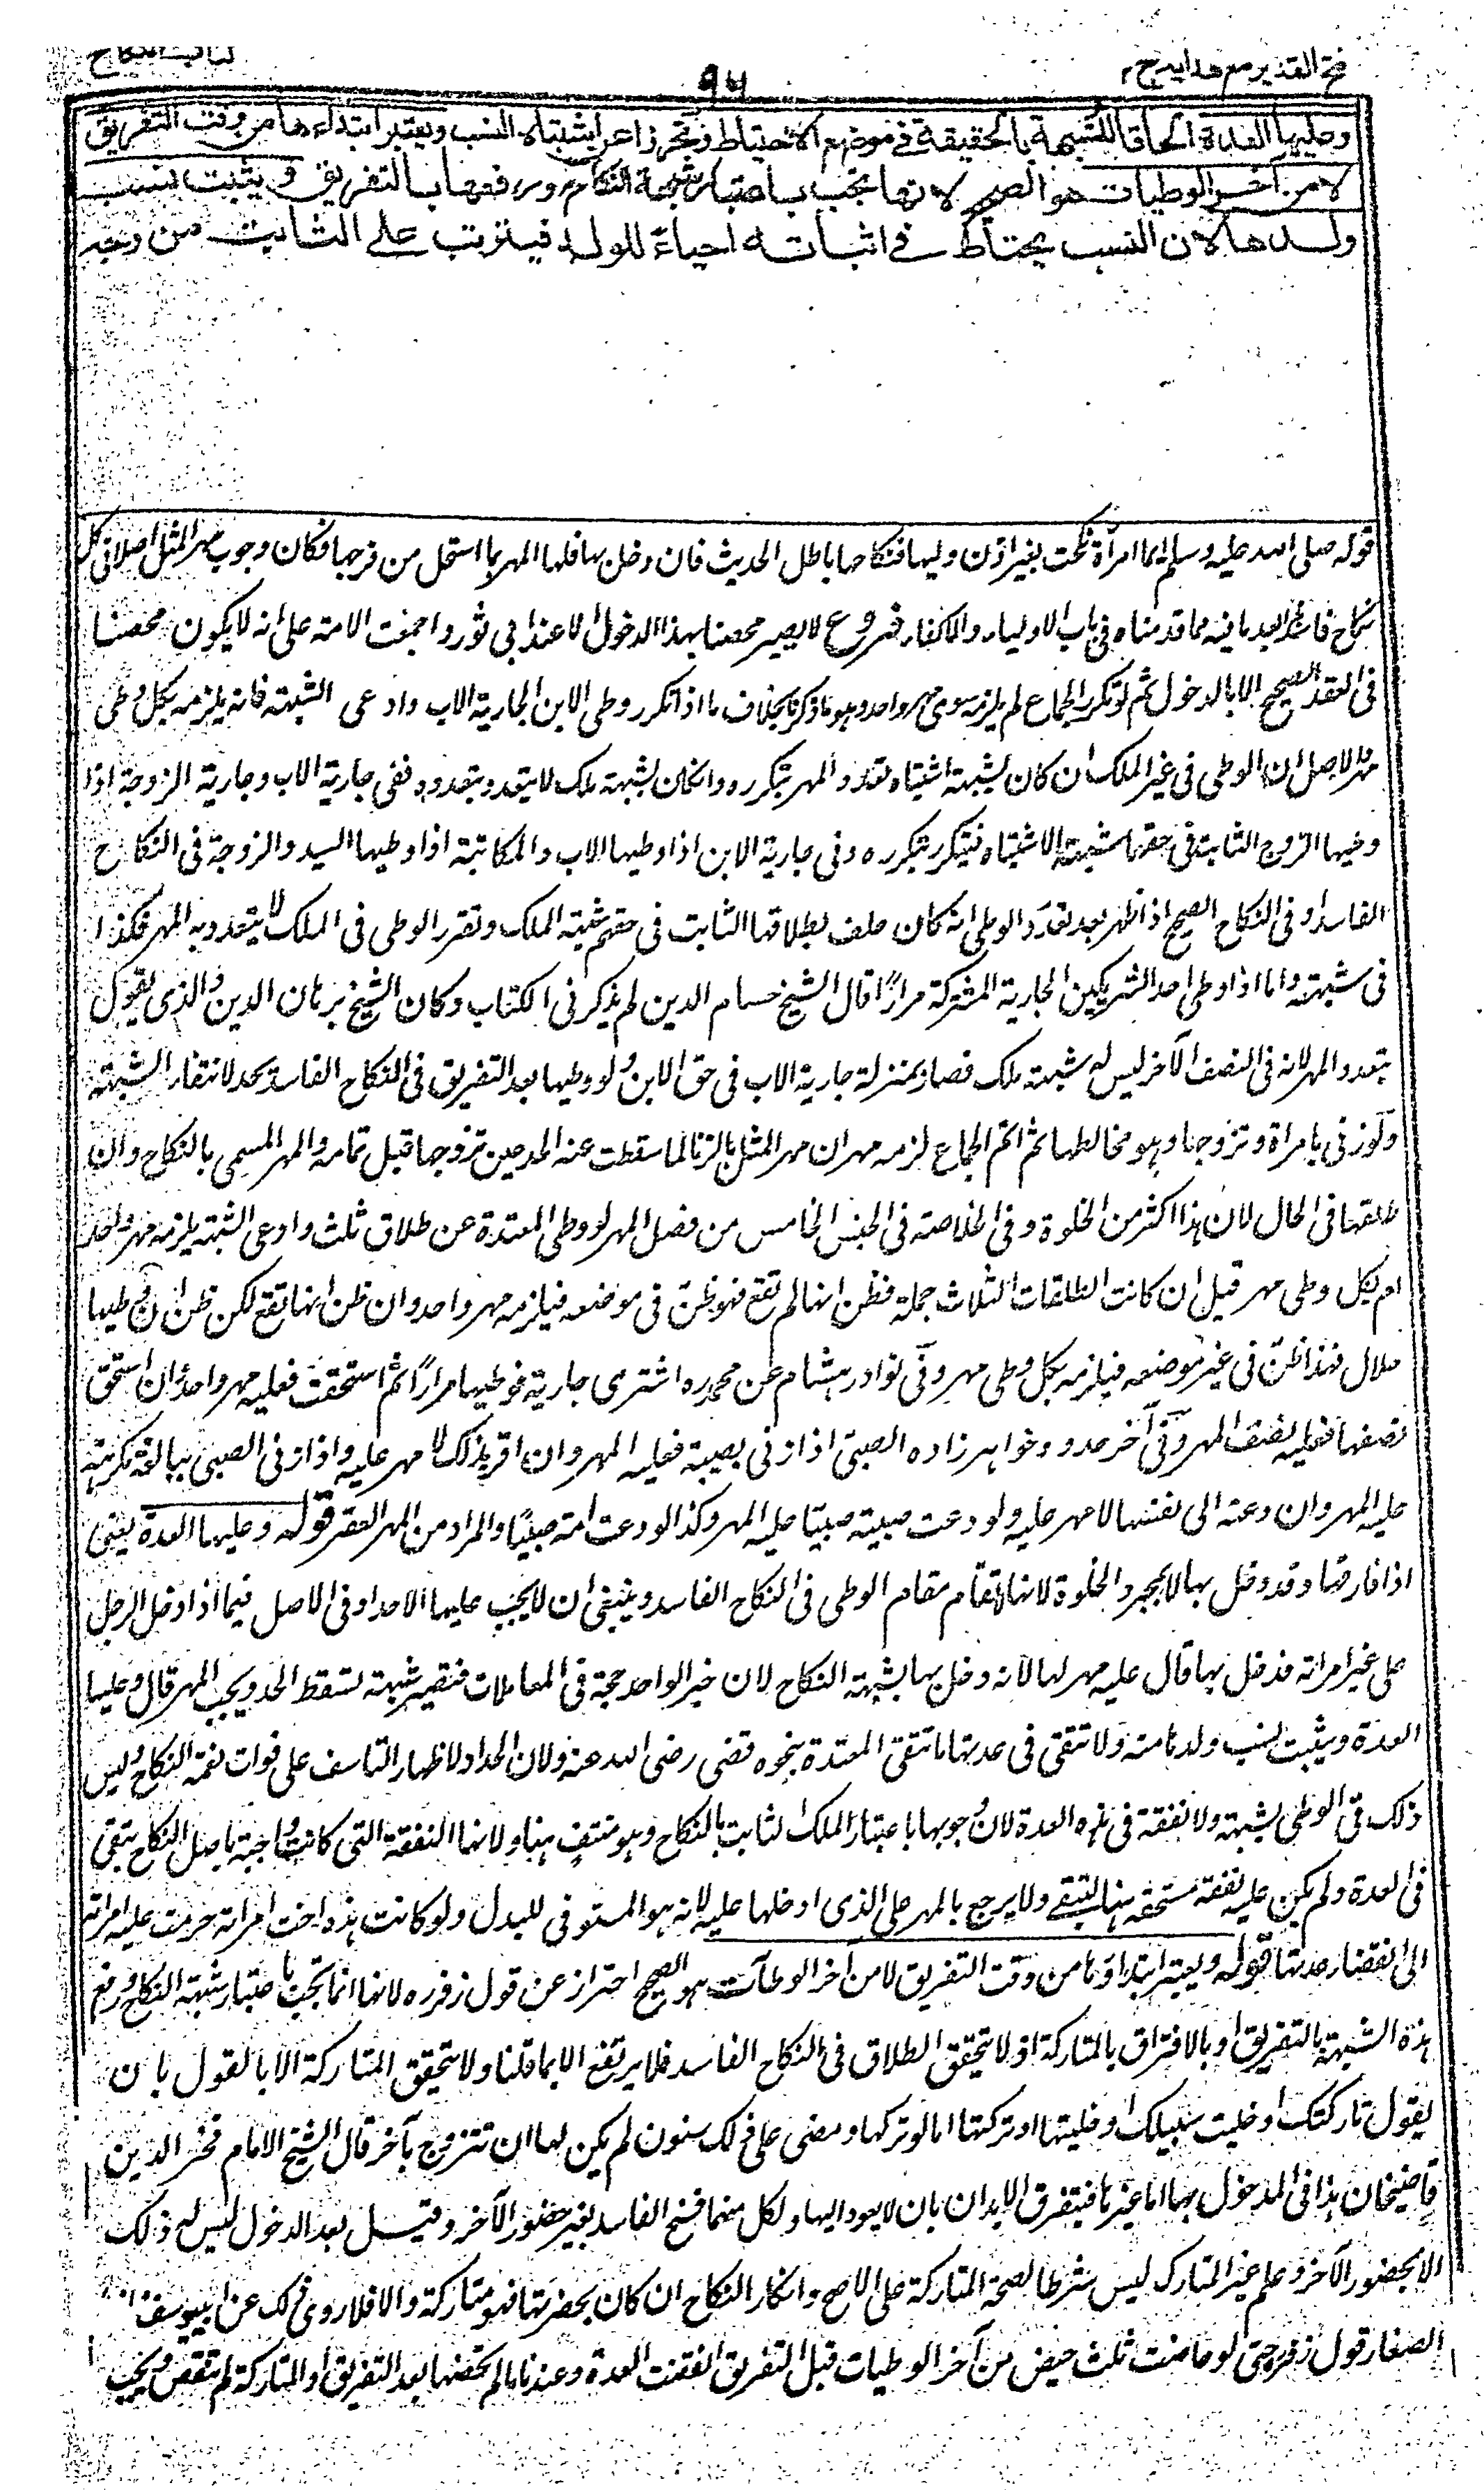 فتح القدير مع هدايه ج ٢
٩٤
كتاب النكاح
وعليها العدة الحاقا للشبهة بالحقيقة فى موضع الاحتياط وتحرزا عن اشتباه النسب ويعتبر ابتداءها من وقت التفريق
لا من آخر الوطيات هو الصحيح لانها تجب باعتبار شبهة النكاح ورفعها بالتفريق ويثبت نسب
ولدها لان النسب يحتاط فى اثباته احياء للولد فيترتب على الثابت من وجه
قوله صلى الله عليه وسلم ايما امرأة نكحت بغير اذن وليها فنكاحها باطل الحديث فان دخل بها فلها المهر بما استحل من فرجها فكان وجوب مهر المثل اصلا فى كل
نكاح فاسد بعد ما فيه مما قدمناه فى باب الاولياء والاكفاء فروع لا يصير محصنا بهذا الدخول الا عند ابى ثور واجمعت الامة على انه لا يكون محصنا
فى العقد الصحيح الا بالدخول ثم لو تكرر الجماع لم يلزمه سوى مهر واحد وهو ما ذكرنا بخلاف ما اذا تكرر وطى الابن لجارية الاب وادعى الشبهة فانه يلزمه بكل وطى
مهر والاصل ان الوطى فى غير الملك ان كان لشبهة اشتباه تعدد المهر بتكرره وان كان لشبهة ملك لا يتعدد بتعدده ففى جارية الاب وجارية الزوجة اذا
وطيها الزوج الثابت فى حقهما شبهة الاشتباه فيتكرر بتكرره وفى جارية الابن اذا وطيها الاب والمكاتبة اذا وطيها السيد والزوجة فى النكاح
الفاسد او فى النكاح الصحيح اذا ظهر بعد تعدد الوطى انه كان حلف بطلاقها الثابت فى حقهم شبهة الملك وتقرر الوطى فى الملك لا يتعدد به المهر فكذا
فى شبهته واما اذا وطى احد الشريكين الجارية المشتركة مرارا قال الشيخ حسام الدين لم يذكر فى الكتاب وكان الشيخ برهان الدين والدى يقول
بتعدد المهر لانه فى النصف الآخر ليس له شبهة ملك فصار بمنزلة جارية الاب فى حق الابن ولو وطيها بعد التفريق فى النكاح الفاسد يحد لانتفاء الشبهة
ولو زنى بامراة وتزوجها وهو مخالطها ثم اتم الجماع لزمه مهران مهر المثل بالزنا لما سقطت عنه الحد حين تزوجها قبل تمامه والمهر المسمى بالنكاح وان
طلقها فى الحال لان هذا اكثر من الخلوة وفى الخلاصة فى الجنس الخامس من فصل المهر لو وطى المعتدة عن طلاق ثلث وادعى الشبهة يلزمه مهر واحد
ام بكل وطى مهر قيل ان كانت الطلقات الثلاث جملة فظن انها لم تقع فهو ظن فى موضعه فيلزمه مهر واحد وان ظن انها تقع لكن ظن ان وطيها
حلال فهذا ظن فى غير موضعه فيلزمه بكل وطى مهر وفى نوادر هشام عن محمد ره اشترى جارية فوطيها مرارا ثم استحقت فعليه مهر واحد وان استحق
نصفها فعليه نصف المهر وفى آخر حدود خواهر زاده الصبى اذا زنى بصبية فعليه المهر وان اقر بذلك لا مهر عليه واذا زنى الصبى ببالغة مكرهة
عليه المهر وان دعته الى نفسها لا مهر عليه ولو دعت صبية صبيا عليه المهر وكذا لو دعت امة صبيا والمراد من المهر العقر قوله وعليها العدة يعنى
اذا فارقها وقد دخل بها لا بمجرد الخلوة لانها لا تقام مقام الوطى فى النكاح الفاسد وينبغى ان لا يجب عليها الاحداد وفى الاصل فيما اذا ادخل الرجل
على غير امراته فدخل بها قال عليه مهر لها لانه دخل بها بشبهة النكاح لان خبر الواحد حجة فى المعاملات فتصير شبهة تسقط الحد ويجب المهر قال وعليها
العدة ويثبت نسب ولدها منه ولا تتقى فى عدتها ما تتقى المعتدة بنحوه قضى رضى الله عنه ولان الحداد لاظهار التاسف على فوات نعمة النكاح وليس
ذلك فى الوطى بشبهة ولا نفقة فى هذه العدة لان وجوبها باعتبار الملك الثابت بالنكاح وهو منتف هنا ولانها النفقة التى كانت واجبة باصل النكاح تبقى
فى العدة ولم يكن عليه نفقة مستحقة هنا لتبقے ولا يرجع بالمهر على الذى ادخلها عليه لانه هو المستوفى للبدل ولو كانت هذه اخت امراته حرمت عليه امراته
الى انقضاء عدتها قوله ويعتبر ابتداؤها من وقت التفريق لا من آخر الوطآت هو الصحيح احتراز عن قول زفر ره لانها انما تجب باعتبار شبهة النكاح ورفع
هذه الشبهة بالتفريق او بالافتراق بالمتاركة اذ لا تحقق الطلاق فى النكاح الفاسد فلا يرتفع الا بما قلنا ولا تتحقق المتاركة الا بالقول بان
يقول تاركتك او خليت سبيلك او خليتها او تركتها اما لو تركها ومضى على ذلك سنون لم يكن لها ان تتزوج بآخر قال الشيخ الامام فخر الدين
قاضيخان هذا فى المدخول بها اما غيرها فيتفرق الابدان بان لا يعود اليها ولكل منهما فسخ الفاسد بغير حضور الآخر وقيل بعد الدخول ليس له ذلك
الا بحضور الآخر وعلم غير المتارك ليس شرطا لصحة المتاركة على الاصح وانكار النكاح ان كان بحضرتها فهو متاركة والا فلا روى ذلك عن ابى يوسف
الصغار قول زفر حتى لو حاضت ثلث حيض من آخر الوطيات قبل التفريق انقضت العدة وعندنا ما لم تحضها بعد التفريق او المتاركة لم تنقض ويجب